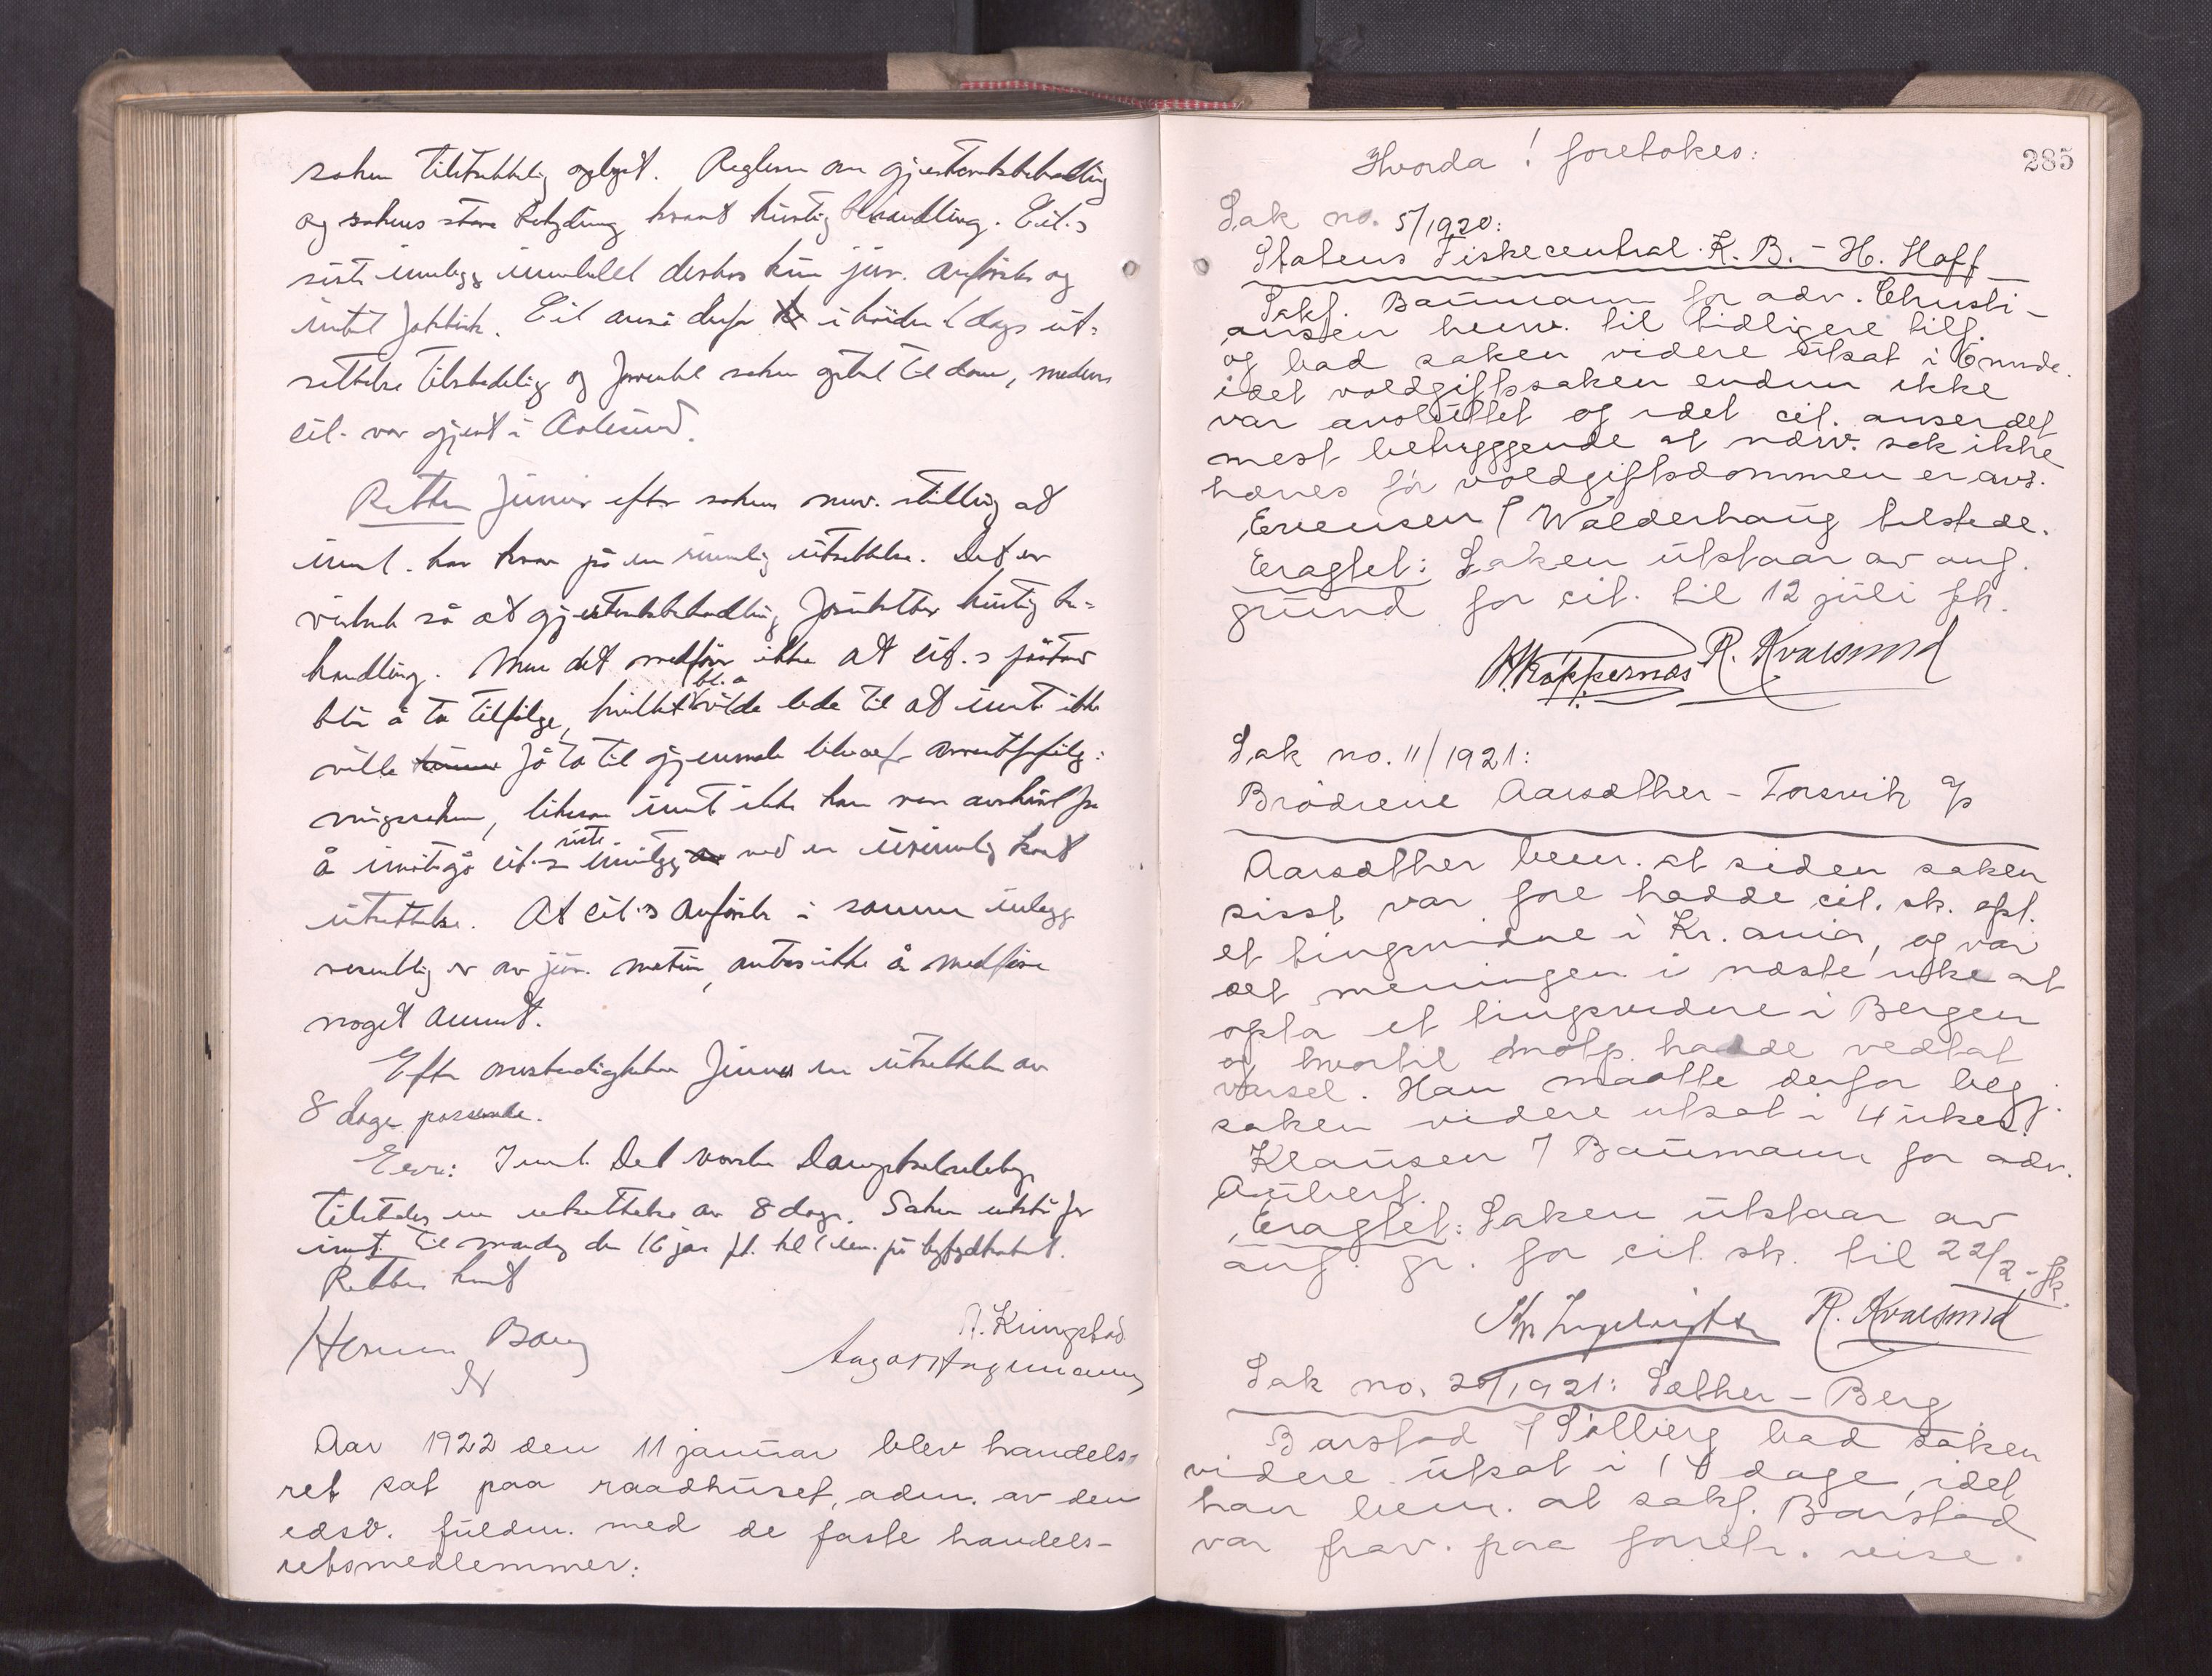 saken tilstrekkelig oplyst. Reglene om gjesteretsbehandling
og sakens store betydning krævet hurtig behandling. Cit.s
siste innlegg inneholdt derhos kun jur. anførsler og
intet faktisk. Cit. anså derfor i høiden dags ut-
settelse tilstedelig og forøvrig saken optat til dom, medens
cit. var gjest i Aalesund.
Retten finner efter sakens nuv. stilling at
innst. har krav på en rimelig utsettelse. Det er
virkelig så at gjesteretsbehandling forutsetter hurtig be-
handling. Men det medfører ikke at cit.s påstand
blir å ta tilfølge, hvilket bl. a. vilde lede til at innst. ikke
vilde få ta til gjenmæle arrestforfølg-
ningssaken, likesom innst. ikke kan være avskåret fra
å imøtegå cit.s siste innlegg ved en urimelig kort
utsettelse. At cit.s anførsler i samme innlegg
vesentlig er av jur. natur, antas ikke å medføre
noget annet.
Efter omstendigheten finnes en utsettelse av
8 dage passende.
Eragt: Innst. Det norske Dampskibselskap
tilstedes en utsettelse av 8 dage. Saken utstår for
innst. til mandag den 16 jan. ft. kl. på byfogdkontoret.
Retten hevet
Herman Bang
R. Kringstad
Aar 1922 den 11 januar blev handels-
ret sat paa raadhuset, adm. av den
edsv. fuldm. med de faste handels-
retsmedlemmer:
285
Hvorda! foretokes:
Sak no. 5/1920:
Statens Fiskecentral K. B. - H. Hoff
Sakf. Baumann for adv. Christi-
ansen henv. til tidligere tilf.
og bad saken videre utsat i 6 mnde.
idet voldgiftssaken endnu ikke
var avsluttet og idet cit. anser det
mest betryggende at nærv. sak ikke
hæves før voldgiftsdommen er avs.
Evensen f Walderhaug tilstede.
Eragtet: Saken utstaar av anf.
grund for cit. til 12 juli fk.
H. Koppernæs R. Kvalsund
Sak no. 11/1921:
Brødrene Aarsæther - Torsvik A/S
Aarsæther bem. at siden saken
sisst var fore hadde cit. sk. opt.
et tingsvidne i Kr.ania, og var
det meningen i næste uke at
opta et tingsvidne i Bergen
og hvortil motp. hadde vedtat
varsel. Han maatte derfor beg.
saken videre utsat i 4 uker.
Klausen f Baumann for adv.
Aubert.
Eragtet: Saken utstaar av
anf. gr. for cit. sk. til 22/2. fk.
R. Kvalsund
Sak no. 20/1921: Sæther - Berg
Barstad f Solberg bad saken
videre utsat i 14 dage, idet
han bem. at sakf. Barstad
var frav. paa forretn. reise.